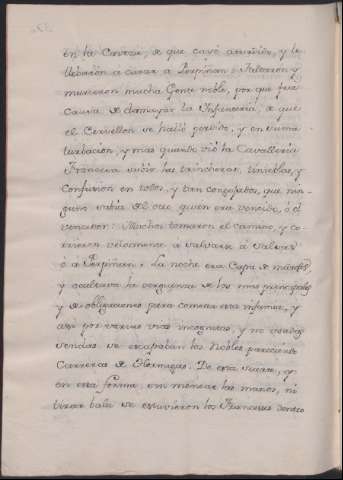 en la Caveza, de que cayò aturdido, y le
llebaron a curar a Perpiñan: Faltaron y
murieron mucha Gente noble, por que fue
Causa de desmayár la Infanteria, de que
el Cervellon se hallò perdido, y en suma
turbacion, y mas quando viò la Cavalleria
Francesa subir las trincheras, tinieblas, y
Confusion en todos, y tan Congojados que nin-
guno sabia del otro, quien era vencido, ò el
vencedor: Muchos tomaron el camino, y co-
rrieron velozmente a salvarse à Salsas
ò a Perpiñan. La noche era Capa de muchos,
y ocultava la verguenza de los mas principales
y de obligaciones para cometer esta infamia, y
assi por varias vias incognitas, y no usadas
sendas se escapaban los Nobles pareciendo
Carreras de Hormigas. De esta suerte, y
en esta forma, sin menear las manos, ni
tirar bala se estuvieron los Franceses dentro